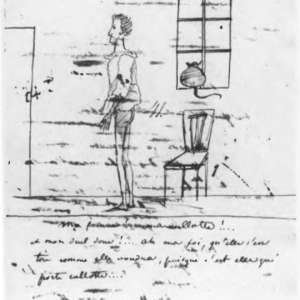 ma femme a ma culotte!...
et mon seul !... ah ma foi, qu'elle s'en
tire comme elle voudra, puisque c'est elle qui
porte culotte...